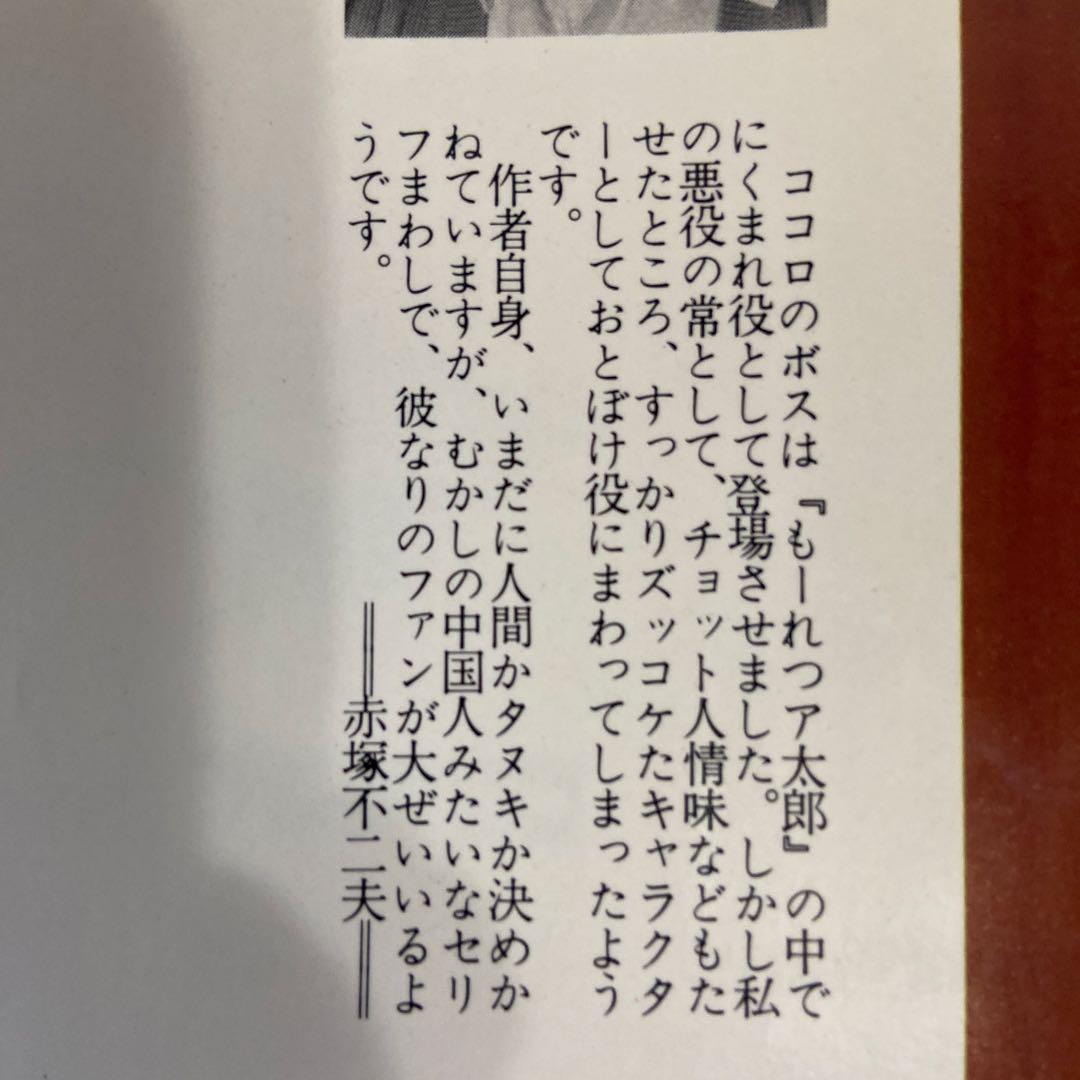 ココロのボスは『もーれつア太郎』の中で
にくまれ役として登場させました。しかし私
の悪役の常として、チョット人情味などもた
せたところ、すっかりズッコケたキャラクタ
ーとしておとぼけ役にまわってしまったよう
です。
作者自身、いまだに人間かタヌキか決めか
ねていますが、むかしの中国人みたいなセリ
フまわしで、彼なりのファンが大ぜいいるよ
うです。
══赤塚不二夫══